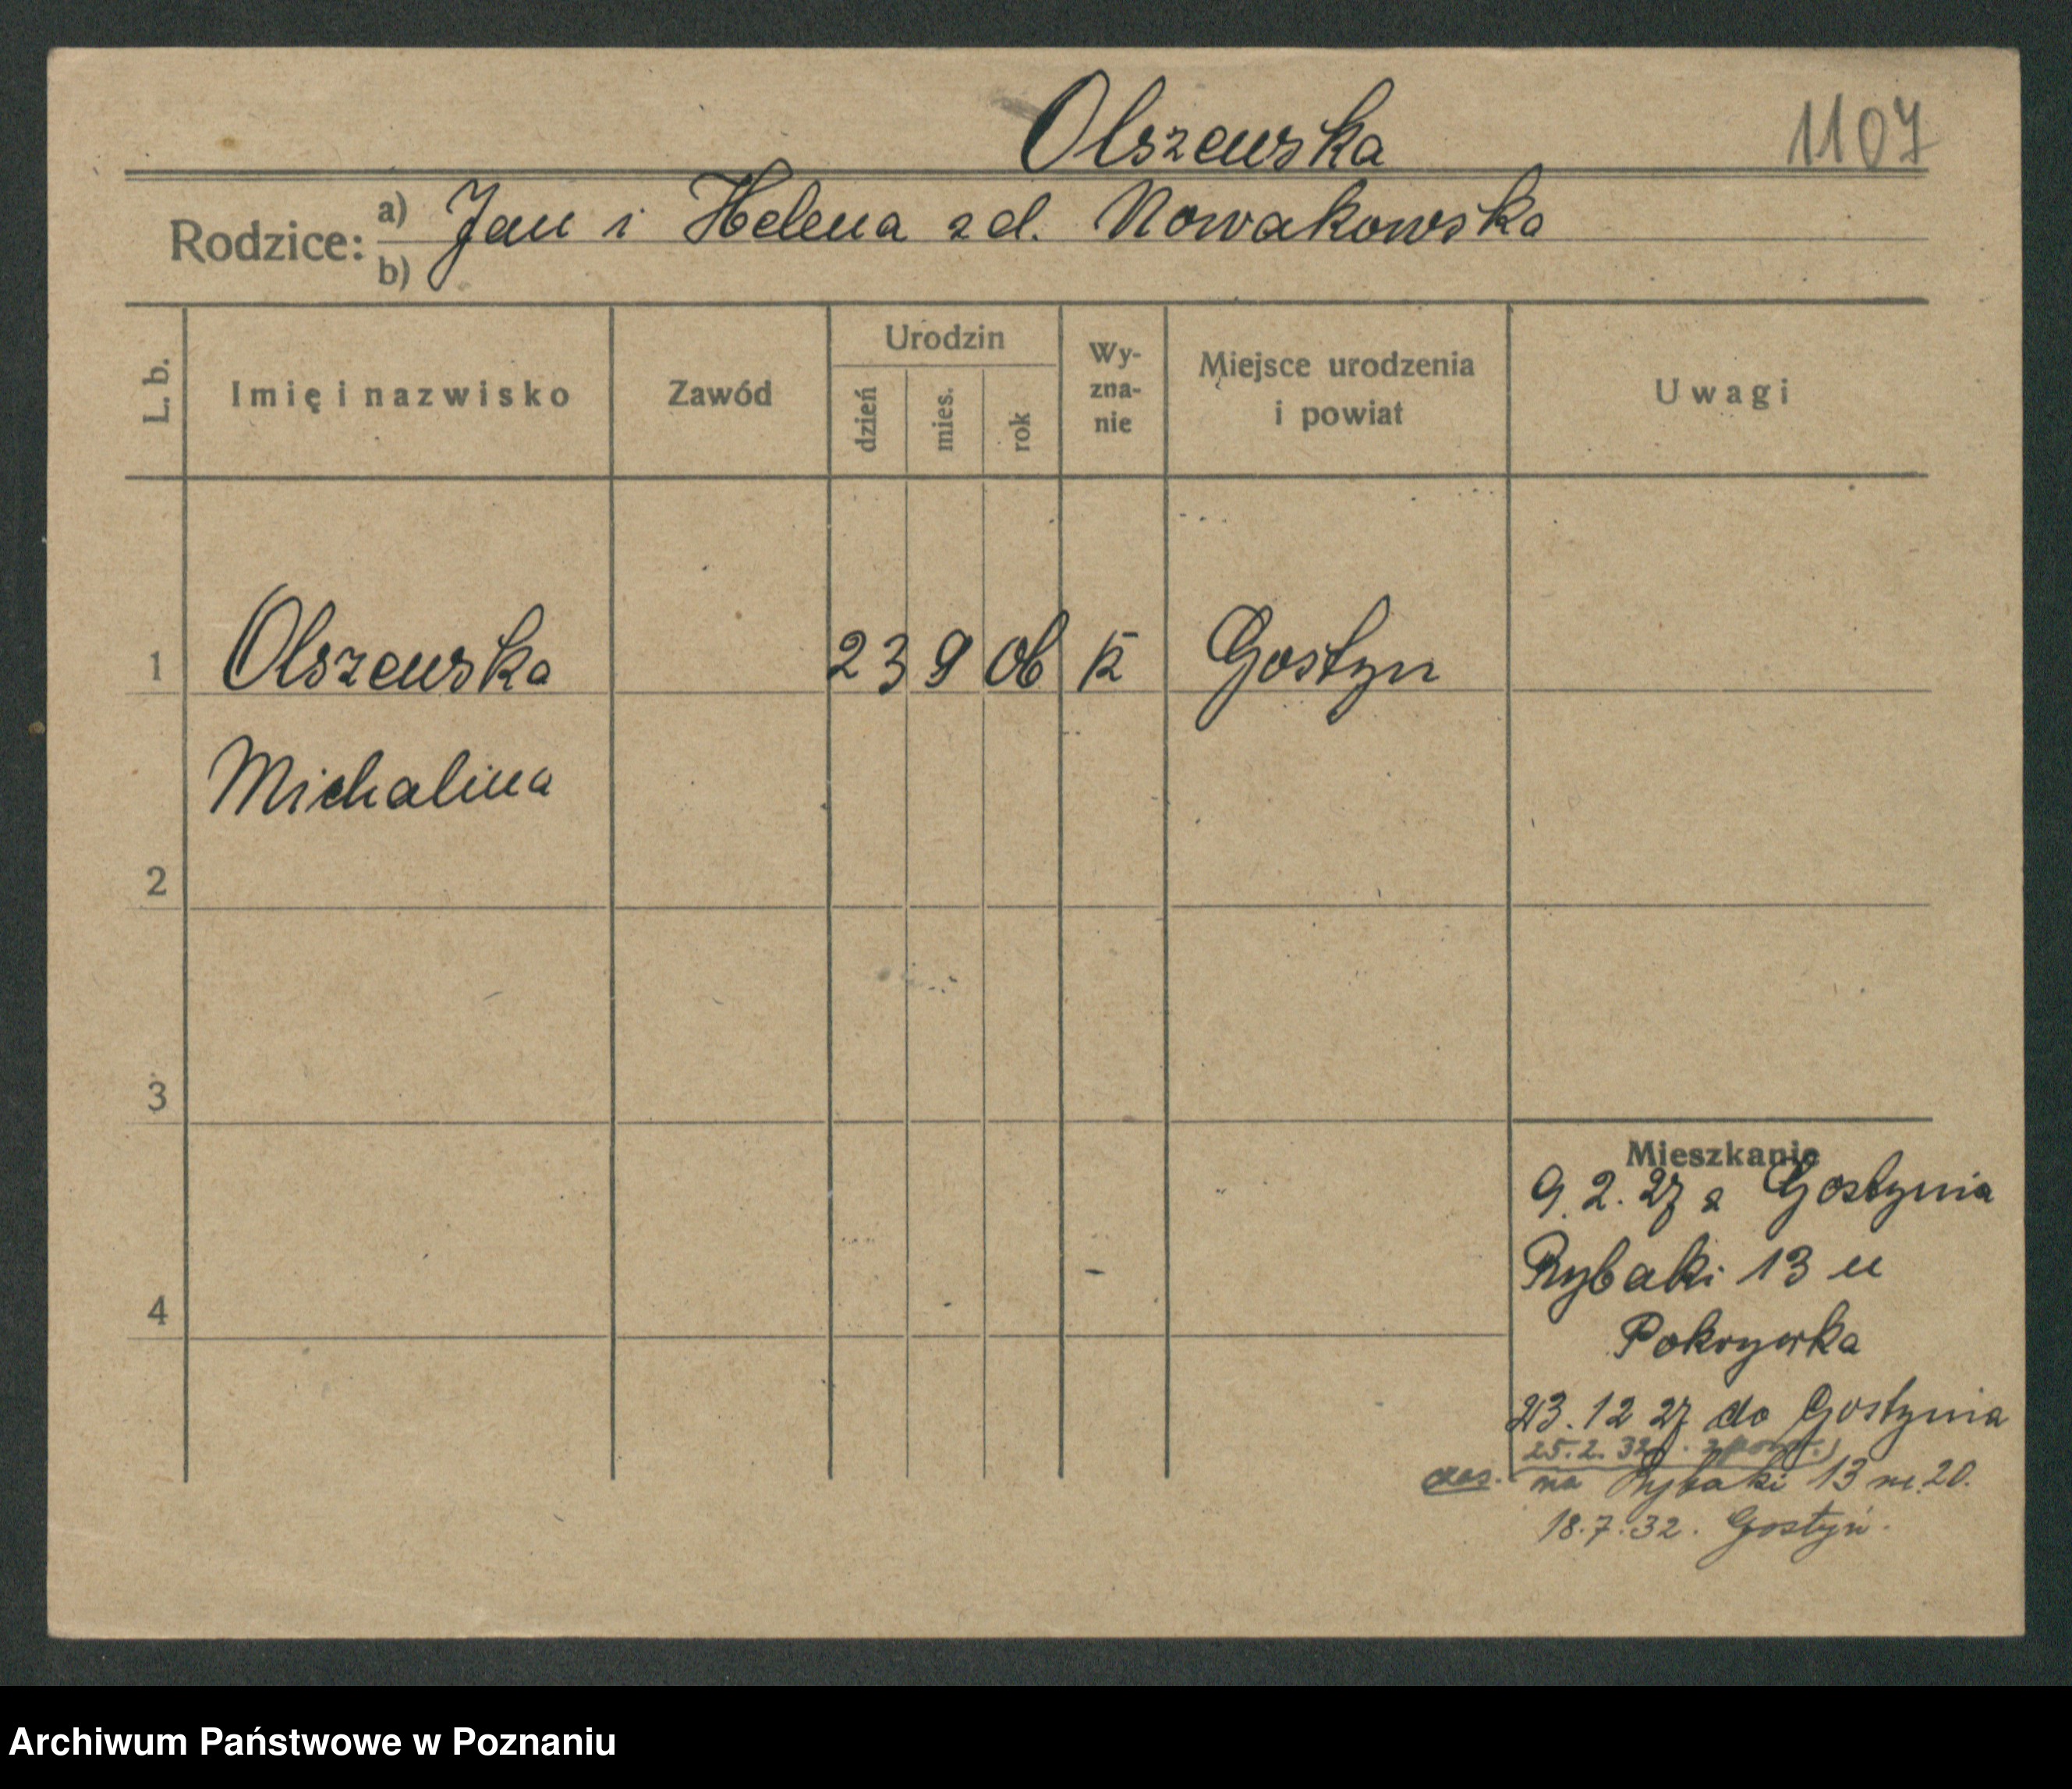 Olszewska
1107
Rodzice:
a) Jan i Helena zd. Nowakowska
b)
L. b.
Imię i nazwisko
Zawód
Urodzin
dzień
mies.
rok
Wy-
zna-
nie
Miejsce urodzenia
i powiat
Uwagi
1 Olszewska 23 9 06 k Gostyn
Michalina
2
3
4
Mieszkanie
9. 2. 27 z Gostynia
Rybaki 13 u
Pokrywka
23. 12 27 do Gostynia
25. 2. 32
czas. na Rybaki 13 m. 20.
18. 7. 32. Gostyń.
Archiwum Państwowe w Poznaniu